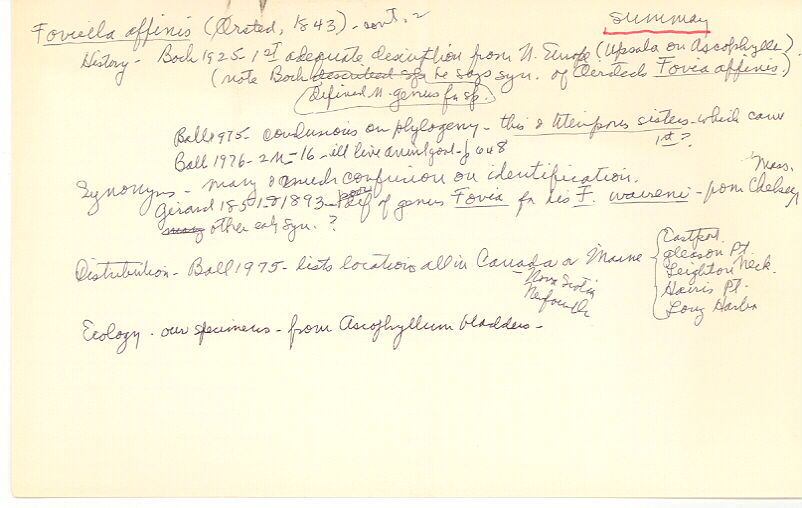 Foviella affinis (Ørsted, 1843) - cont. 2
Summary
History - Bock 1925 - 1st adequate description from N. Europe (Upsala on Ascophyllu).
(note Bock described sp. he says syn. of Oersted Fovia affinis.)
Defined n. genus for sp.
Ball 1975 - conclusions on phylogeny - this & Uteriporus sisters - which came
1st?
Ball 1976 - 2N=16 - ill live animl good - p 648
Synonyms - many & much confusion on identification. Mass.
Girard 1851 & 1893 - poor def of genus Fovia for his F. warreni - from Chelsey,
many other early syn. ?
Distribution - Ball 1975 - lists locations all in Canada or Maine
Nova Scotia
Eastport
Gleason Pt.
Leighton Neck.
Harris Pt.
Long Harbor
Ecology - our specimens - from Ascophyllum bladders -